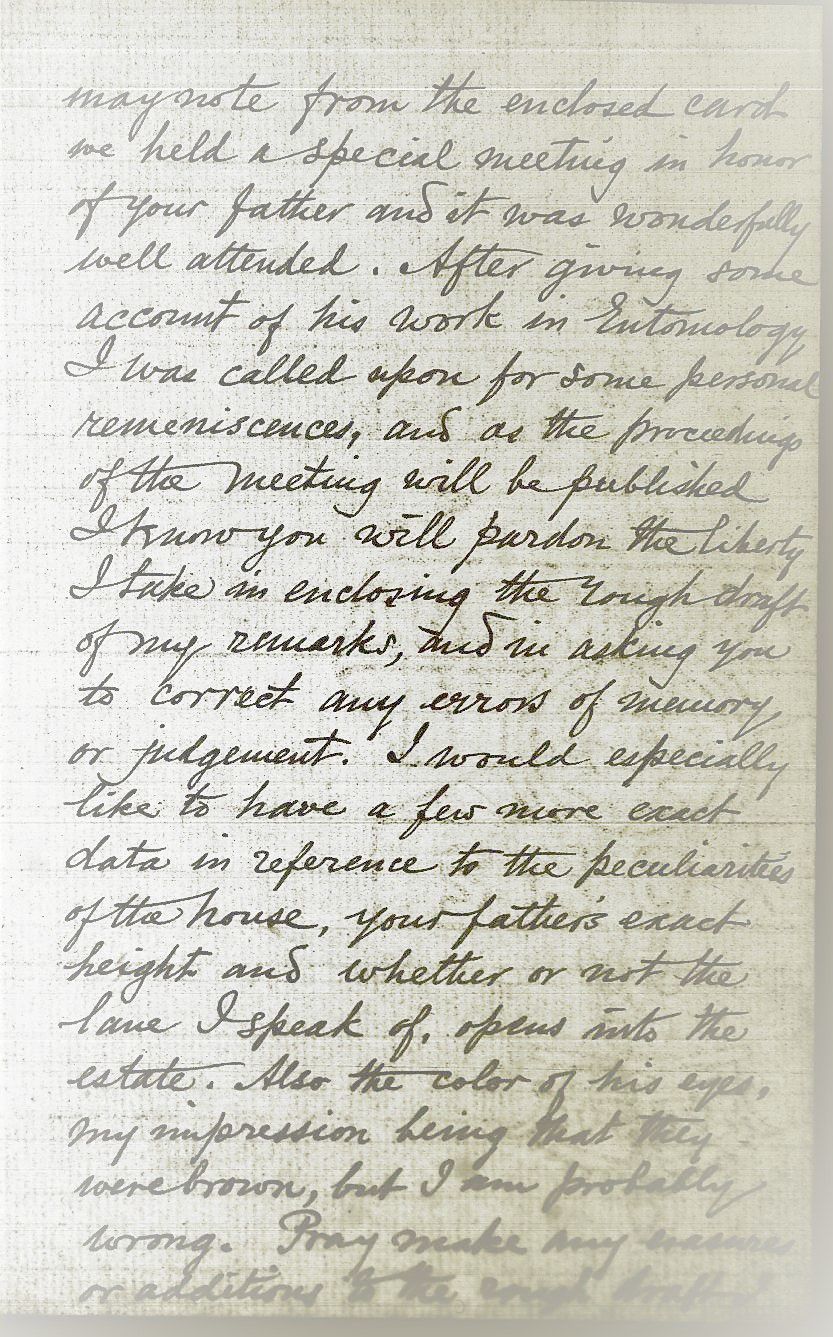 may note from the enclosed card
we held a special meeting in honor
of your father and it was wonderfully
well attended. After giving some
account of his work in Entomology
I was called upon for some personal
remeniscences, and as the proceedings
of the meeting will be published
I know you will pardon the liberty
I take in enclosing the rough draft
of my remarks, and in asking you
to correct any errors of memory
or judgement. I would especially
like to have a few more exact
data in reference to the peculiarities
of the house, your father's exact
height and whether or not the
lane I speak of, opens into the
estate. Also the color of his eyes,
my impression being that they
were brown, but I am probably
wrong. Pray make any erasures
or additions to the rough draft